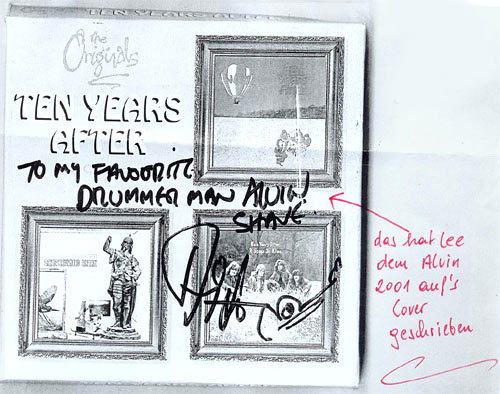 the
Originals
TEN YEARS
AFTER
TO MY FAVOURITE
DRUMMER MAN ALVIN
SHAVE.
Ten Years After
A Space In Time
das hat Lee
dem Alvin
2001 auf's
Cover
geschrieben